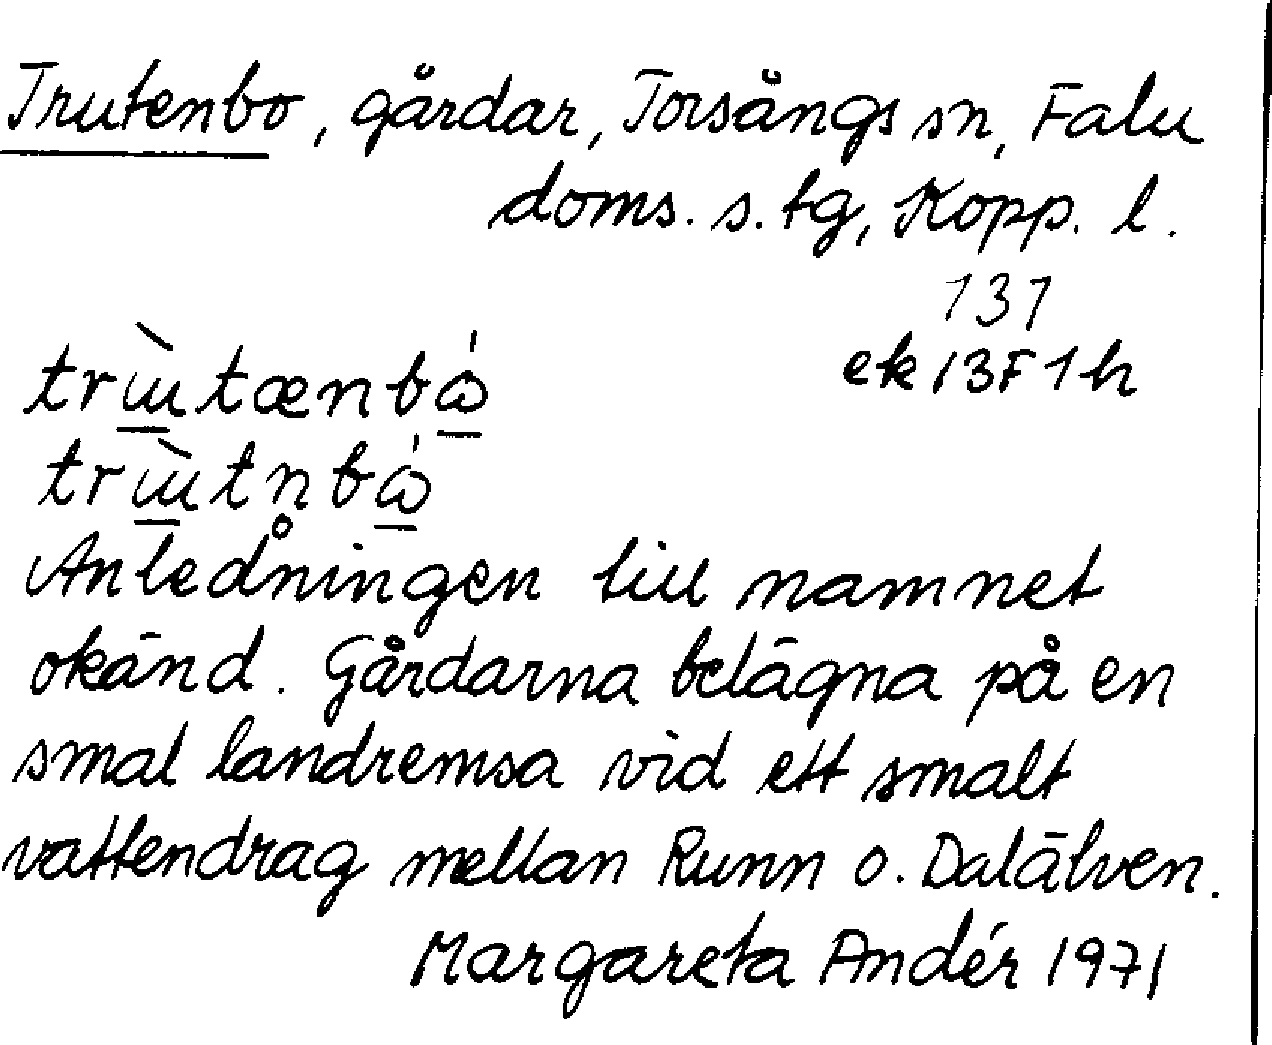 Trutenbo, gårdar, Torsångs sn, Falu
doms. s. tg, Kopp. l.
131
ek 13F1h
trɯ̀tænbɷ́
trɯ̀tnbɷ́
Anledningen till namnet
okänd. Gårdarna belägna på en
smal landremsa vid ett smalt
vattendrag mellan Runn o. Dalälven.
Margareta Andér 1971